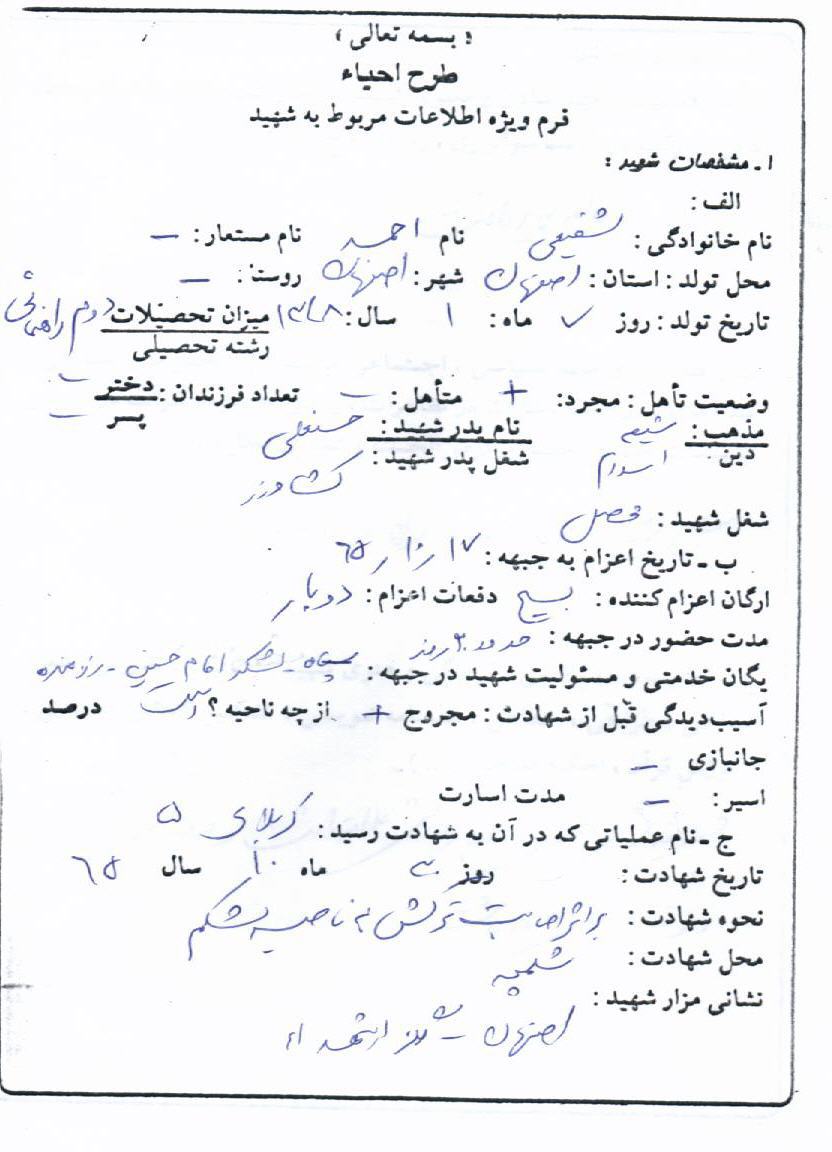 « بسمه تعالی »
طرح احیاء
فرم ویژه اطلاعات مربوط به شهید
۱ ـ مشخصات شهید :
الف :
نام خانوادگی : شفیعی نام احمد نام مستعار : –
محل تولد : استان : اصفهان شهر : اصفهان روستا : –
تاریخ تولد : روز ۷ ماه : ۱ سال : ۱۳۴۸ میزان تحصیلات دوم راهنمائی
رشته تحصیلی
وضعیت تأهل : مجرد : + متأهل : – تعداد فرزندان : دختر –
پسر –
مذهب : شیعه نام پدر شهید : حسنعلی
دین : اسلام شغل پدر شهید : کشاورز
شغل شهید : محصل
ب ـ تاریخ اعزام به جبهه : ۱۷ / ۱۰ / ۶۵
ارگان اعزام کننده : بسیج دفعات اعزام : دو بار
مدت حضور در جبهه : حدود روز
یگان خدمتی و مسئولیت شهید در جبهه : سپاه - لشکر امام حسین - رزمنده
آسیب‌دیدگی قبل از شهادت : مجروح + از چه ناحیه ؟ درصد
جانبازی –
اسیر : – مدت اسارت
ج ـ نام عملیاتی که در آن به شهادت رسید : کربلای ۵
تاریخ شهادت : روز ماه ۱۰ سال ۶۵
نحوه شهادت : بر اثر اصابت ترکش به ناحیه شکم
محل شهادت : شلمچه
نشانی مزار شهید :
اصفهان - گلزار شهداء